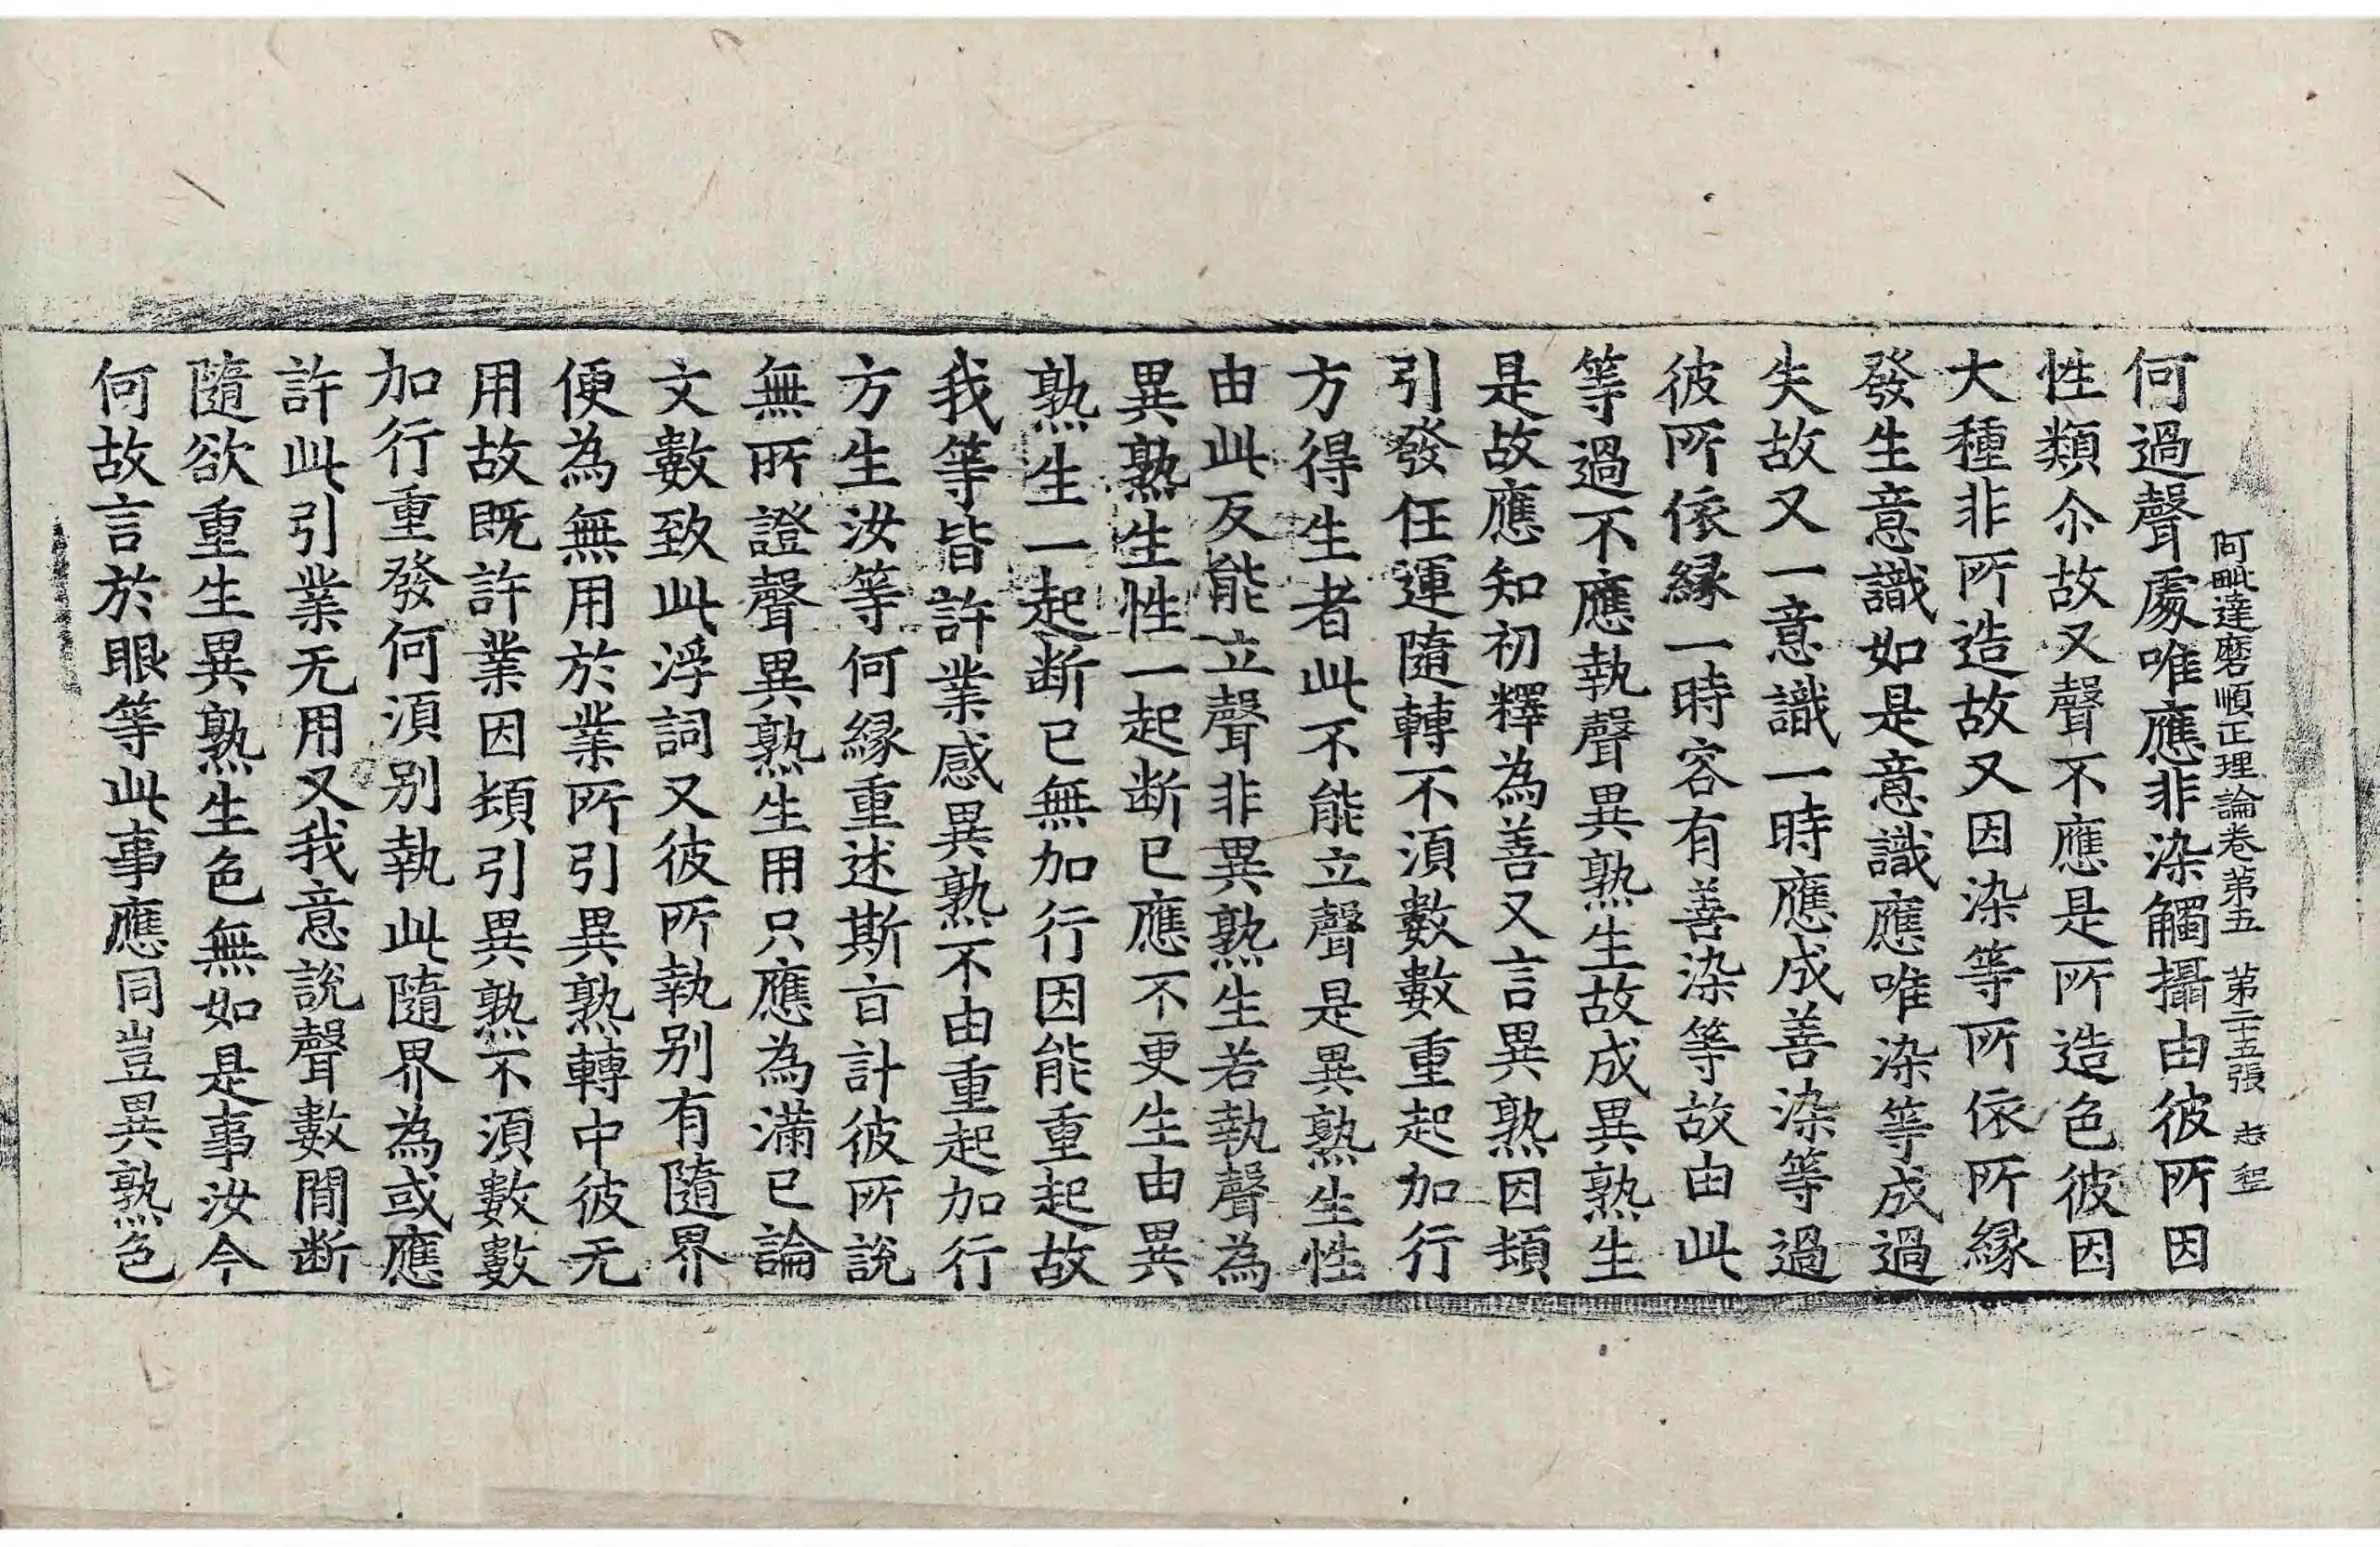 阿毗達磨順正理論卷第五　第二十五張　志
何過聲處唯應非染觸攝由彼所因
性類尒故又聲不應是所造色彼因
大種非所造故又因染等所依所縁
發生意識如是意識應唯染等成過
失故又一意識一時應成善染等過
彼所依縁一時容有善染等故由此
等過不應執聲異熟生故成異熟生
是故應知初釋為善又言異熟因頓
引發任運隨轉不湏數數重起加行
方得生者此不能立聲是異熟生性
由此反能立聲非異熟生若執聲為
異熟生性一起断已應不更生由異
熟生一起断已無加行因能重起故
我等皆許業感異熟不由重起加行
方生汝等何縁重述斯言計彼所說
無所證聲異熟生用只應為滿已論
文數致此浮詞又彼所執别有隨界
便為無用於業所引異熟轉中彼无
用故既許業因頓引異熟不湏數數
加行重發何湏别執此隨界為或應
許此引業无用又我意說聲數間断
隨欲重生異熟生色無如是事汝今
何故言於眼等此事應同豈異熟色